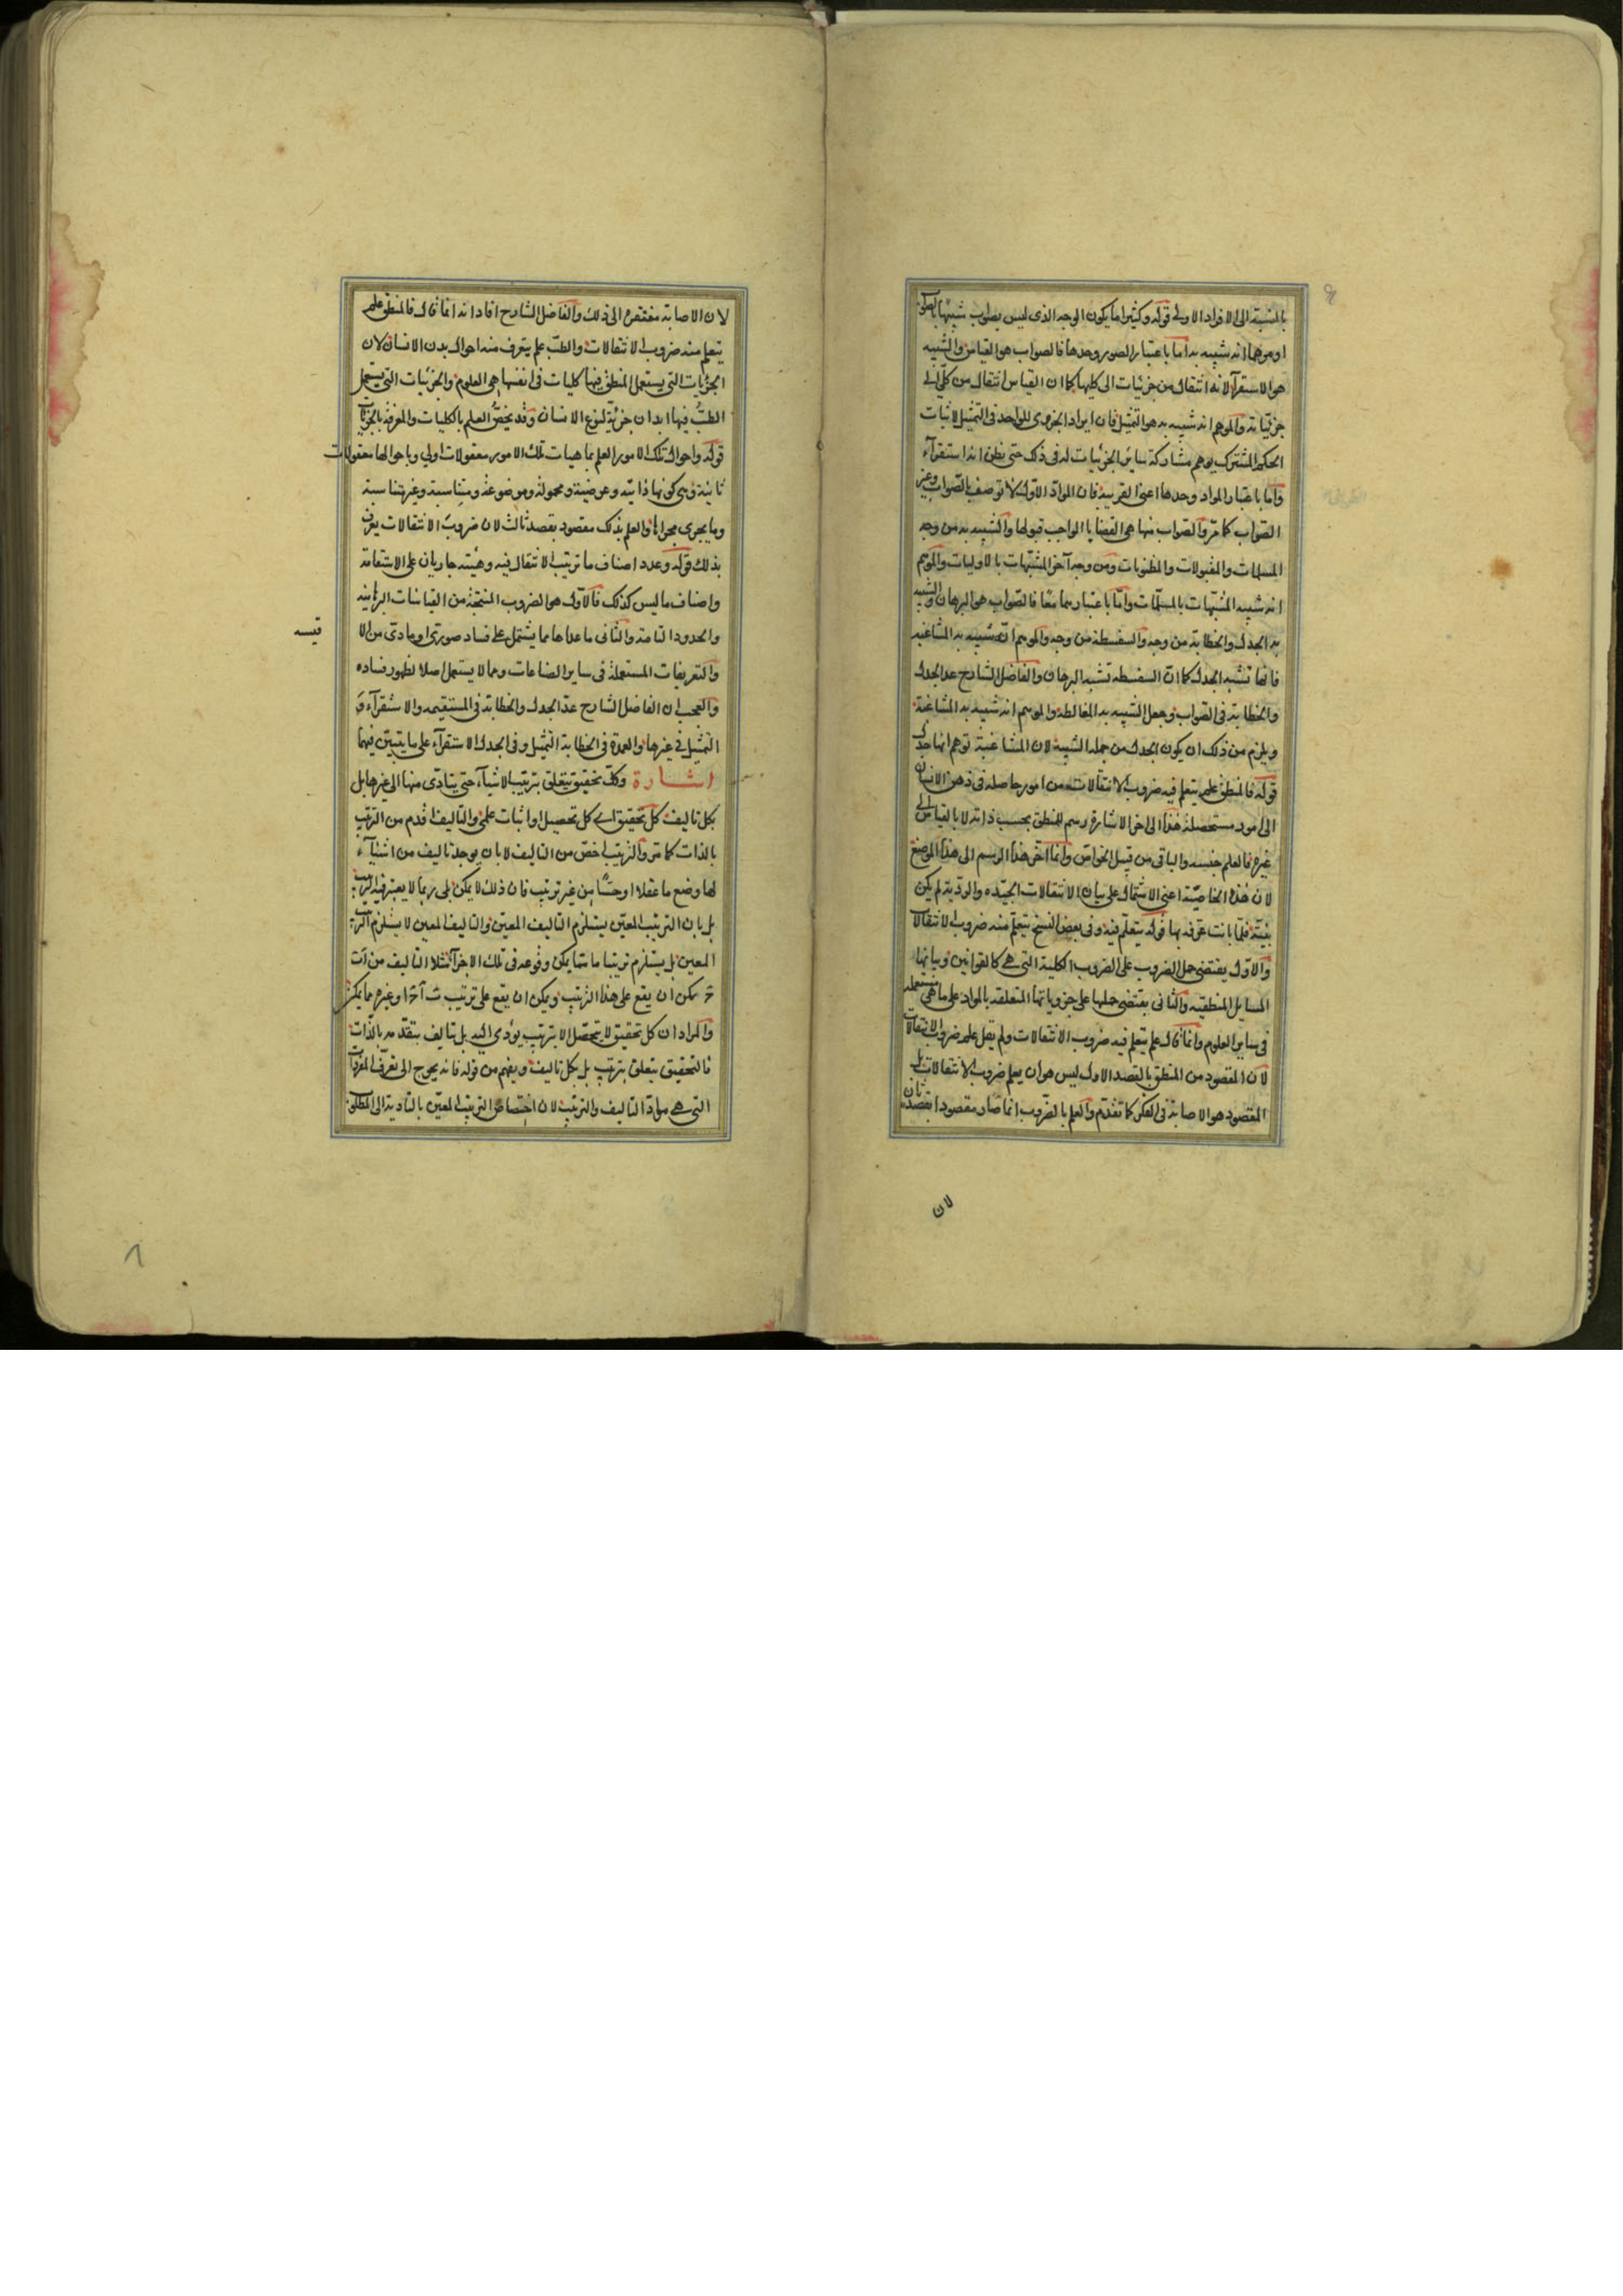 بالنسبة الى الافراد الاولى قوله وكثيرا ما يكون الوجه الذى ليس بصواب شبيها بالصواب
او موهما انه شبيه به اما باعتبار الصور وحدها فالصواب هو القياس والشبيه
هو الاستقرآء لانه انتقال من جزئيات الى كليها كما ان القياس انتقال من كلى الى
جزئياته والموهم انه شبيه به هو التمثيل فان ايراد الجزوى الواحد فى التمثيل لاثبات
الحكم المشترك يوهم مشاركة ساير الجزئيات له فى ذلك حتى يظن انه استقرآء
واما باعتبار المواد وحدها اعنى القريبة فان المواد الاول لا توصف بالصواب وغير
الصواب كما مر والصواب منها هى القضايا الواجب قبولها والشبيه به من وجه
المسلمات والمقبولات والمظنونات ومن وجه آخر المشبهات بالاوليات والموهم
انه شبيه المشبهات بالمسلمات واما باعتبارهما معا فالصواب هو البرهان والشبيه
به الجدل والخطابة من وجه والسفسطة من وجه والموهم انه شبيه به المشاغبة
فانها تشبه الجدل كما ان السفسطه تشبه البرهان والفاضل الشارح عد الجدل
والخطابة فى الصواب وجعل الشبيه به المغالطة والموهم انه شبيه به المشاغبة
ويلزم من ذلك ان يكون الجدل من جملة الشبيه لان المشاغبة توهم انها جدل
قوله فالمنطق علم يتعلم فيه ضروب الانتقالات من امور حاصله فى ذهن الانسان
الى امور مستحصلة هذا الى اخر الاشارة رسم للمنطق بحسب ذاته لا بالقياس الى
غيره فالعلم جنسه والباقى من قبيل الخواص وانما اخر هذا الرسم الى هذا الموضع
لان هذه الخاصية اعنى الاشتمال على بيان الانتقالات الجيده والردية لم يكن
بينة فلما بانت عرفه بها قوله يتعلم فيه وفى بعض النسخ يتعلم منه ضروب الانتقالات
والاول يقتضى حمل الضروب على الضروب الكلية التى هى كالقوانين وبيانها
المسايل المنطقيه والثانى يقتضى حملها على جزوياتها المتعلقه بالمواد على ما هى مستعمله
فى ساير العلوم وانما قال علم يتعلم فيه ضروب الانتقالات ولم يقل علم ضروب الانتقالات
لان المقصود من المنطق بالقصد الاول ليس هو ان يعلم ضروب الانتقالات بل
المقصود هو الاصابة فى الفكر كما تقدم والعلم بالضروب انما صار مقصودا بقصد ثان
لان
لان الاصابة مفتقرة الى ذلك والفاضل الشارح افاد انه انما قال فالمنطق علم
يتعلم منه ضروب الانتقالات والطب علم يتعرف منه احوال بدن الانسان لان
الجزئيات التى يستعمل المنطق فيها كليات فى انفسها هى العلوم والجزئيات التى يستعمل
الطب فيها ابدان جزئية لنوع الانسان وقد يخص العلم بالكليات والمعرفة بالجزئيات
قوله واحوال تلك الامور العلم بماهيات تلك الامور معقولات اولى وباحوالها معقولات
ثانية وهى كونها ذاتيه وعرضية ومحمولة وموضوعة ومتناسبة وغير متناسبة
وما يجرى مجراها والعلم بذلك مقصود بقصد ثالث لان ضروب الانتقالات يعرف
بذلك قوله وعدد اصناف ما ترتيب الانتقال فيه وهيئته جاريان على الاستقامة
واصناف ما ليس كذلك فالاول هو الضروب المنتجة من القياسات البرهانيه
والحدود التامة والثانى ما عداها مما يشتمل على فساد صورى او مادى من الا
قيسه
والتعريفات المستعملة فى ساير الصناعات ومما لا يستعمل اصلا لظهور فساده
والعجب ان الفاضل الشارح عد الجدل والخطابة فى المستقيمه والاستقرآء و
التمثيل فى غيرها والعمدة فى الخطابة التمثيل وفى الجدل الاستقرآء على ما يتبين فيهما
اشارة وكل تحقيق يتعلق بترتيب الاشيآء حتى يتادى منها الى غيرها بل
بكل تاليف كل تحقيق اى كل تحصيل او اثبات علمى والتاليف اقدم من الترتيب
بالذات كما مر والترتيب اخص من التاليف لا بان يوجد تاليف من اشيآء
لها وضع ما عقلا او حسا من غير ترتيب فان ذلك لا يمكن بل ربما لا يعتبر فيه الترتيب
بل بان الترتيب المعين يستلزم التاليف المعين والتاليف المعين لا يستلزم الترتيب
المعين بل يستلزم ترتيبا ما مما يمكن وقوعه فى تلك الاجزآء مثلا التاليف من ا ب
ج يمكن ان يقع على هذا الترتيب ويمكن ان يقع على ترتيب ب ا ج او غيره مما يمكن
والمراد ان كل تحقيق لا يتحصل الا بترتيب يؤدى اليه بل بتاليف يتقدمه بالذات
فالتحقيق يتعلق بترتيب بل بكل تاليف ويفهم من قوله فانه يحوج الى تعرف المفردات
التى هى مواد التاليف والترتيب لان اختصاص الترتيب المعين بالتادية الى المطلوب